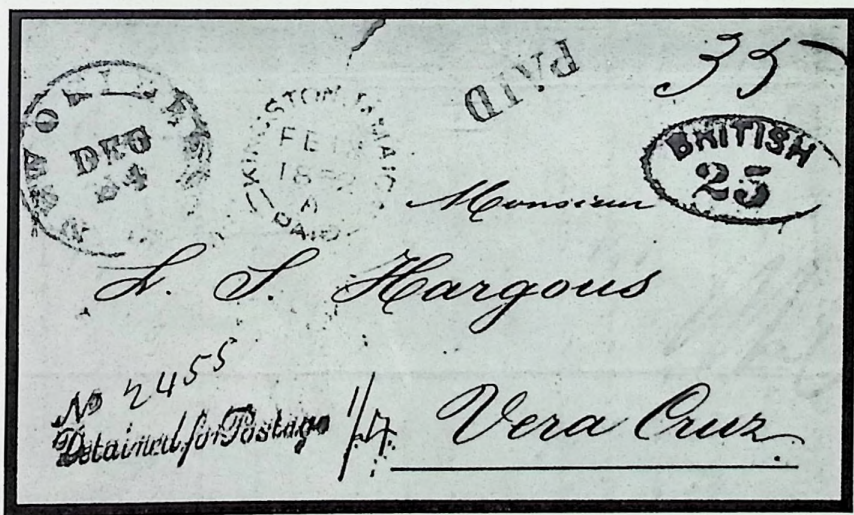 35
PAID
NEW ORLEANS
DEC
24
KINGSTON JAMAICA
FE
185
A
PAID
BRITISH
25
Monsieur
L. S. Hargous
No 2455
Detained for Postage
1/4
Vera Cruz